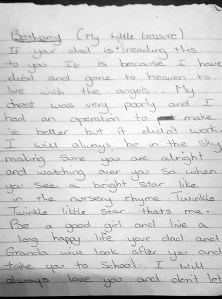 Bethany (My little treasure)
If your dad is reading this
to you it is because I have
died and gone to heaven to
live with the angels. My
chest was very poorly and I
had an operation to make
is better but it didn't work
I will always be in the sky
making sure you are alright
and watching over you so when
you see a bright star like
in the nursery rhyme Twinkle
Twinkle little star thats me.
Be a good girl and live a
long happy life your dad and
Grandia will look after you and
take you to School. I will
always love you and don't let